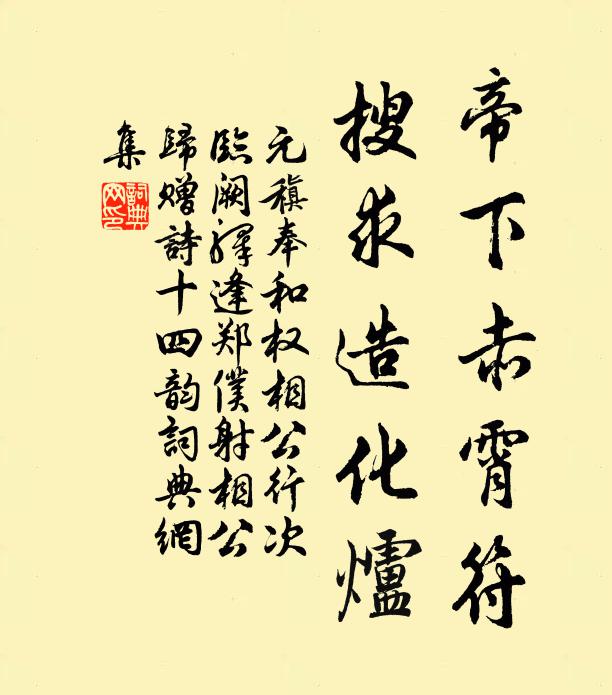 帝下赤霄符
搜求造化爐
元稹奉和权相公行次
臨阙驛逢郑僕射相公
歸赠詩十四韵詞典網
集
詞典
网印